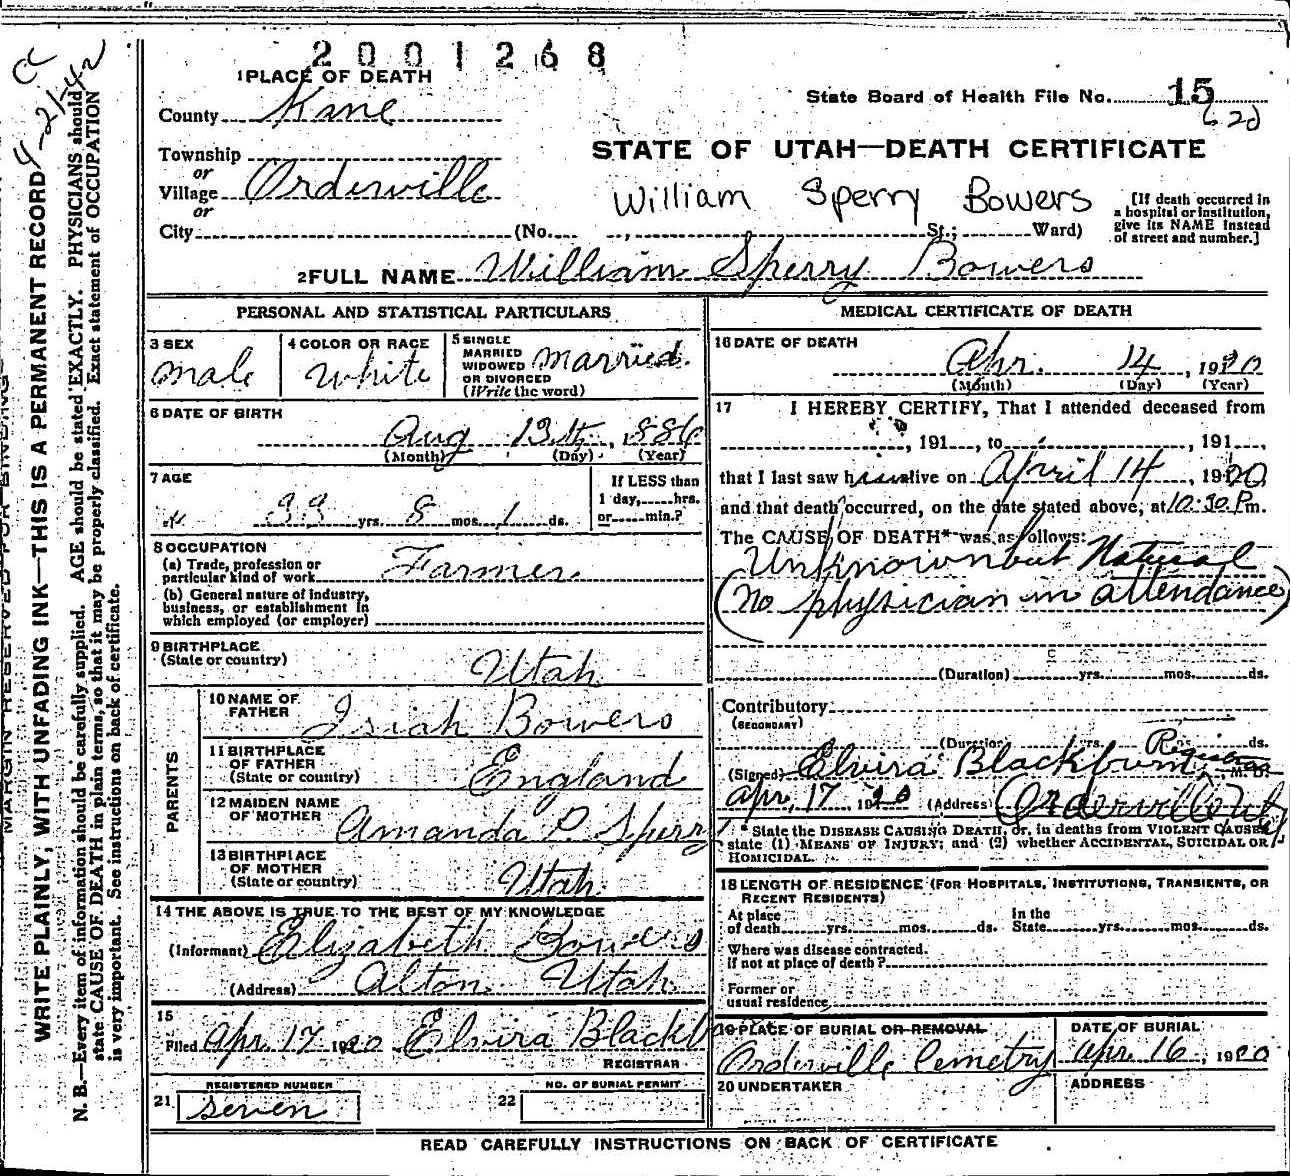 2001268
CC
4-21-42
1 PLACE OF DEATH
County Kane
Township
or
Village Orderville
or
City (No. , St.; Ward)
State Board of Health File No. 15
STATE OF UTAH—DEATH CERTIFICATE
William Sperry Bowers
[If death occurred in
a hospital or institution,
give its NAME instead
of street and number.]
2 FULL NAME William Sperry Bowers
PERSONAL AND STATISTICAL PARTICULARS
3 SEX
male
4 COLOR OR RACE
White
5 SINGLE
MARRIED
WIDOWED
OR DIVORCED
(Write the word)
married.
6 DATE OF BIRTH
Aug 13th, 1886
(Month) (Day) (Year)
7 AGE
33 yrs. 8 mos. 1 ds.
If LESS than
1 day, hrs.
or min.?
8 OCCUPATION
(a) Trade, profession or
particular kind of work Farmer
(b) General nature of industry,
business, or establishment in
which employed (or employer)
9 BIRTHPLACE
(State or country) Utah
PARENTS
10 NAME OF
FATHER Isiah Bowers
11 BIRTHPLACE
OF FATHER
(State or country) England
12 MAIDEN NAME
OF MOTHER Amanda P Sperry
13 BIRTHPLACE
OF MOTHER
(State or country) Utah
14 THE ABOVE IS TRUE TO THE BEST OF MY KNOWLEDGE
(Informant) Elizabeth Bowers
(Address) Alton Utah
15
Filed Apr. 17 1920 Elvira Blackb
REGISTRAR
REGISTERED NUMBER
21 seven
NO. OF BURIAL PERMIT
22
MEDICAL CERTIFICATE OF DEATH
16 DATE OF DEATH
Apr. 14, 1920
(Month) (Day) (Year)
17 I HEREBY CERTIFY, That I attended deceased from
, 191 , to , 191 ,
that I last saw him alive on April 14, 1920
and that death occurred, on the date stated above, at 10:30 P.m.
The CAUSE OF DEATH* was as follows:
Unknown but Natural
(No physician in attendance)
(Duration) yrs. mos. ds.
Contributory
(SECONDARY)
(Duration) yrs. ds.
(Signed) Elvira Blackburn M. D.
Apr. 17 1920 (Address) Orderville Utah
* State the DISEASE CAUSING DEATH, or, in deaths from VIOLENT CAUSES,
state (1) MEANS OF INJURY; and (2) whether ACCIDENTAL, SUICIDAL OR
HOMICIDAL.
18 LENGTH OF RESIDENCE (FOR HOSPITALS, INSTITUTIONS, TRANSIENTS, OR
RECENT RESIDENTS)
At place
of death yrs. mos. ds.
In the
State yrs. mos. ds.
Where was disease contracted.
If not at place of death?
Former or
usual residence
19 PLACE OF BURIAL OR REMOVAL
Orderville Cemetry
DATE OF BURIAL
Apr. 16, 1920
20 UNDERTAKER
ADDRESS
READ CAREFULLY INSTRUCTIONS ON BACK OF CERTIFICATE
MARGIN RESERVED FOR BINDING
WRITE PLAINLY, WITH UNFADING INK—THIS IS A PERMANENT RECORD
N. B.—Every item of information should be carefully supplied. AGE should be stated EXACTLY. PHYSICIANS should
state CAUSE OF DEATH in plain terms, so that it may be properly classified. Exact statement of OCCUPATION
is very important. See instructions on back of certificate.